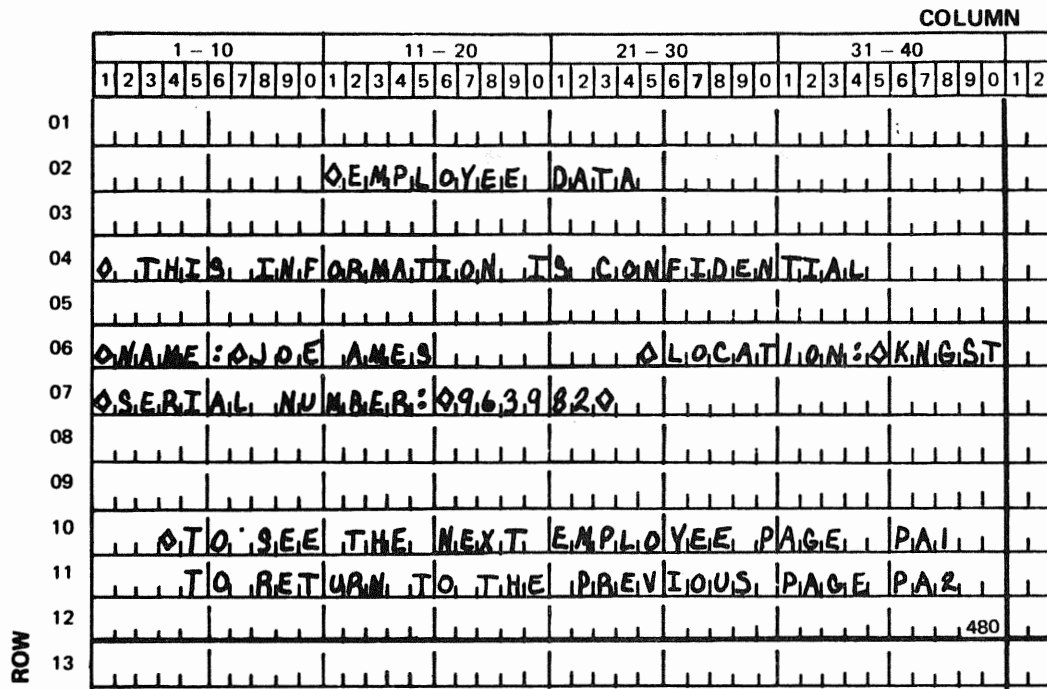 COLUMN
1 – 10 11 – 20 21 – 30 31 – 40
1 2 3 4 5 6 7 8 9 0 1 2 3 4 5 6 7 8 9 0 1 2 3 4 5 6 7 8 9 0 1 2 3 4 5 6 7 8 9 0 1 2
01
02 ◇EMPLOYEE DATA
03
04 ◇ THIS INFORMATION IS CONFIDENTIAL
05
06 ◇NAME:◇JOE AMES ◇LOCATION:◇KNGST
07 ◇SERIAL NUMBER:◇963982◇
08
09
10 ◇TO SEE THE NEXT EMPLOYEE PAGE PA1
11 TO RETURN TO THE PREVIOUS PAGE PA2
12 480
13
ROW